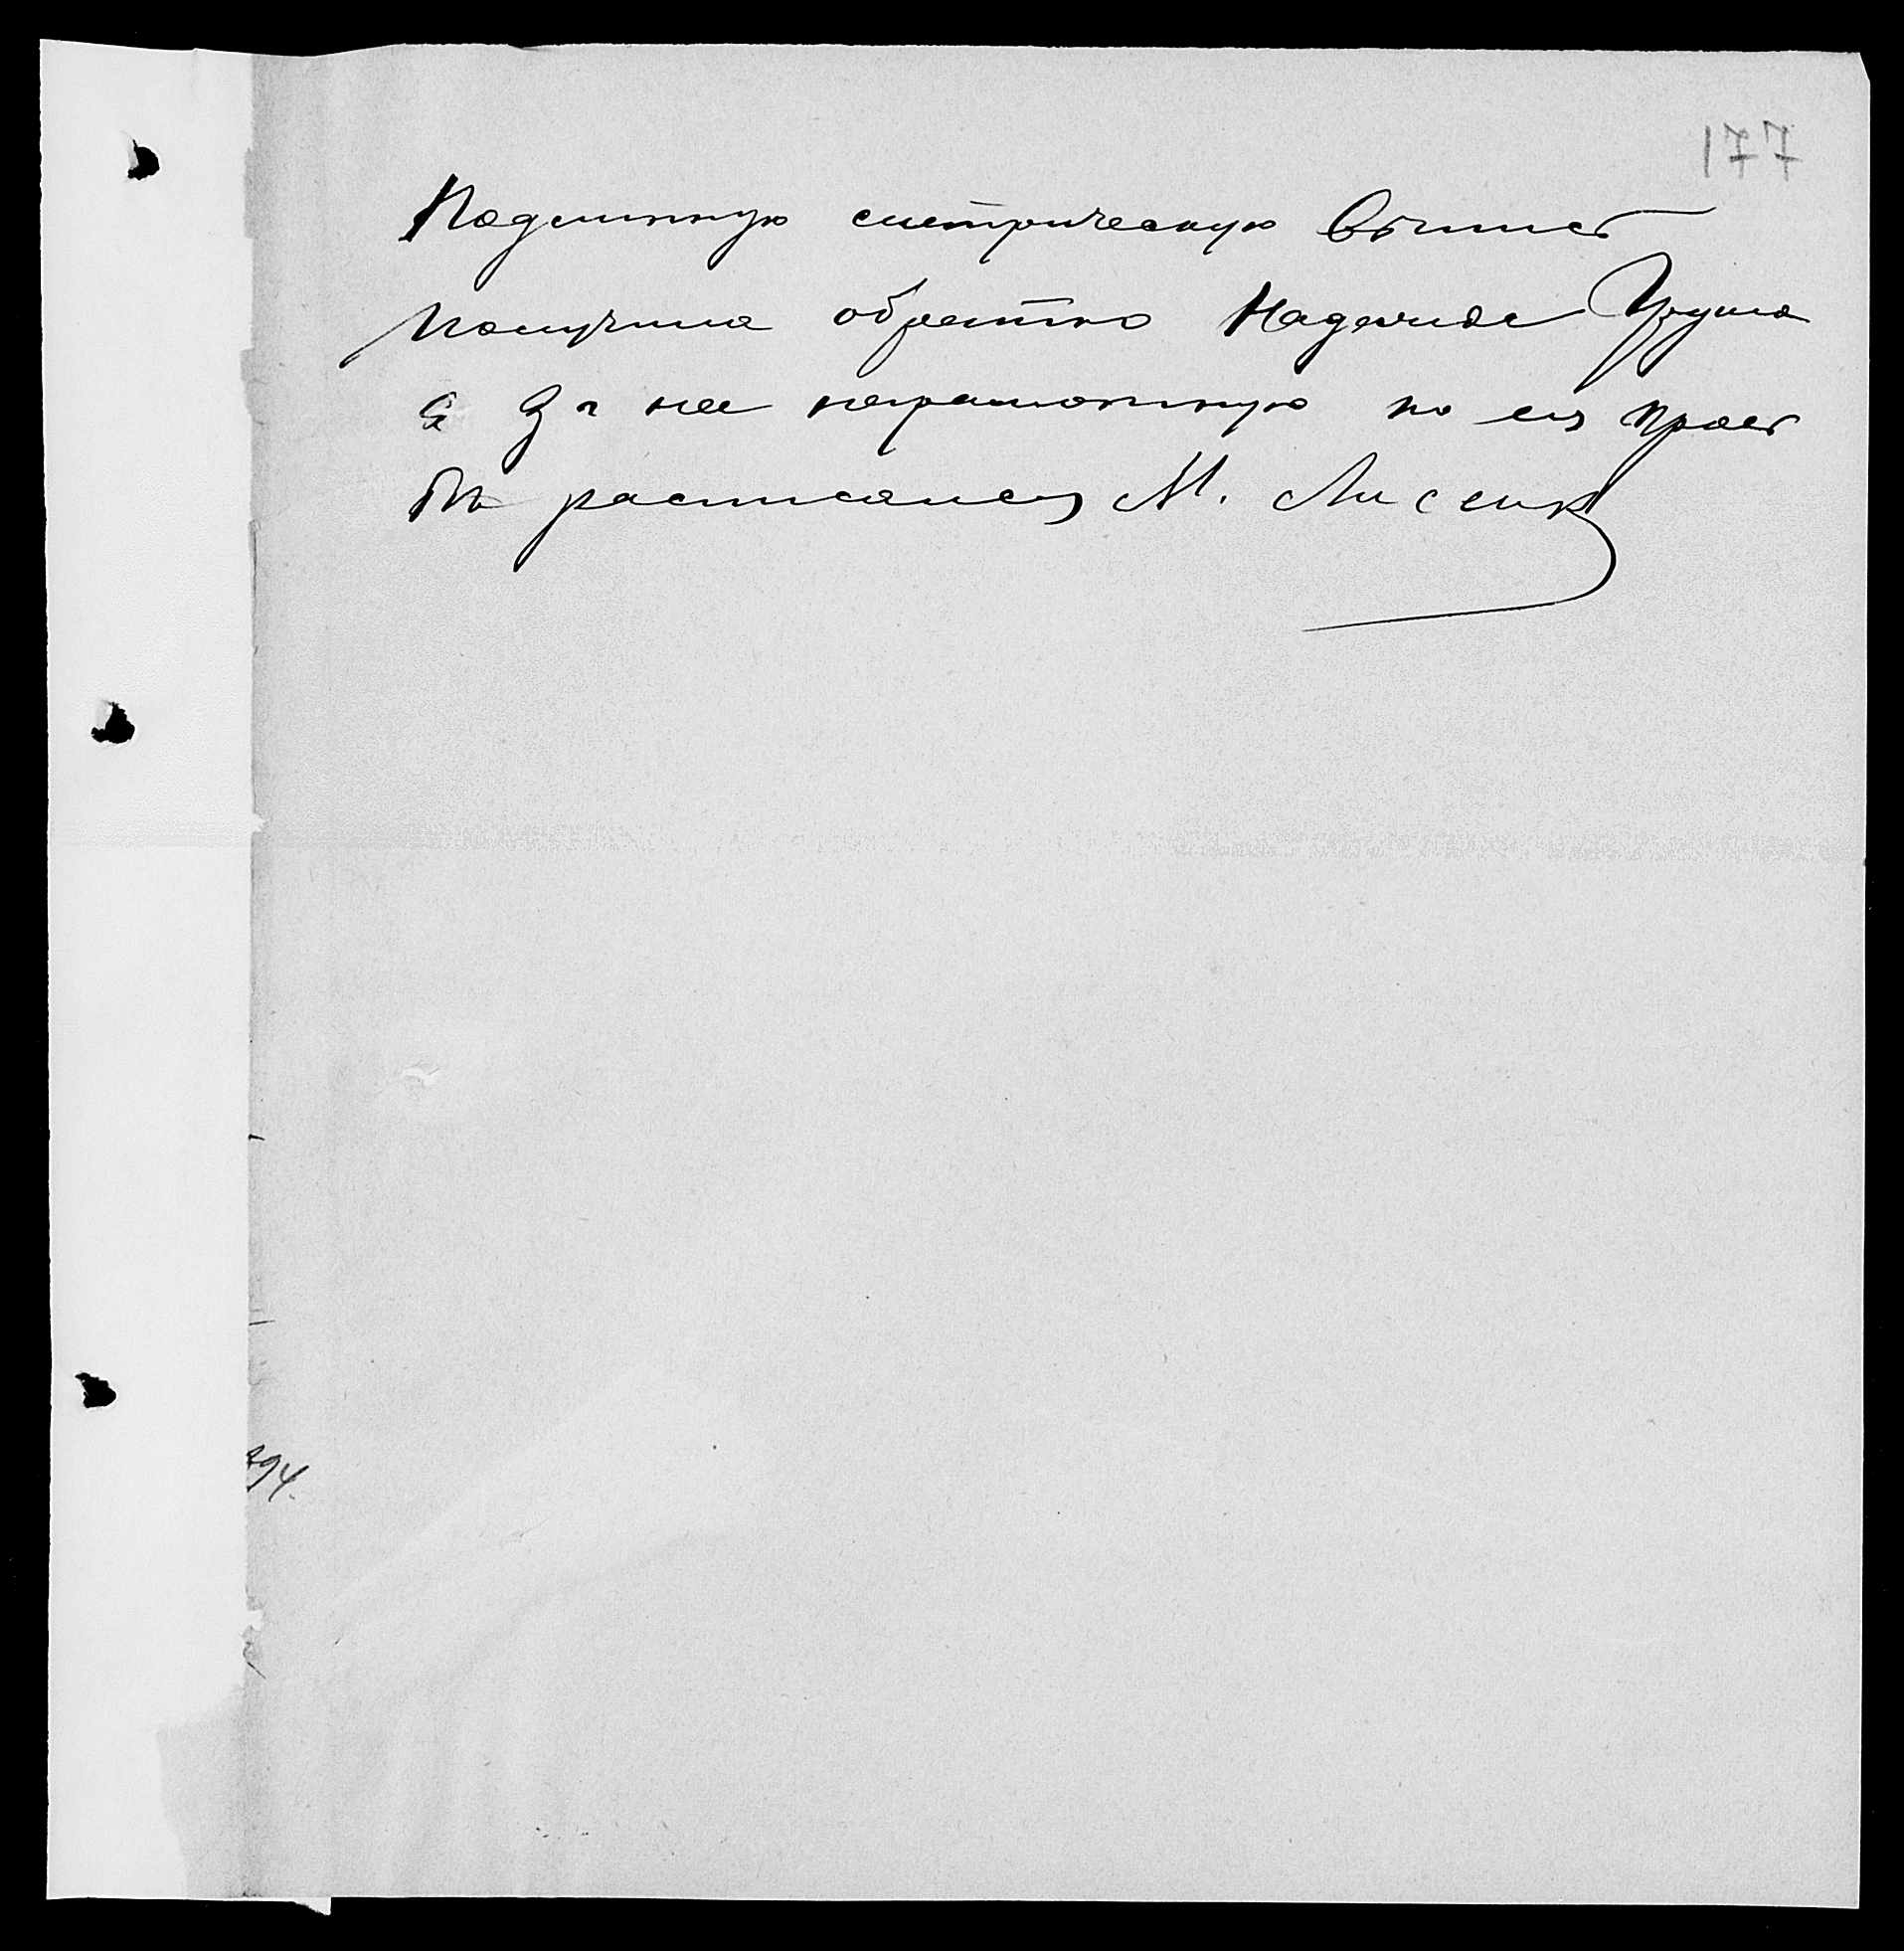 177
Подлинную метрическую выпись
получила обратно Надежда
а за нее неграмотную по ея прось
бѣ расписался М. Лисенк
94.